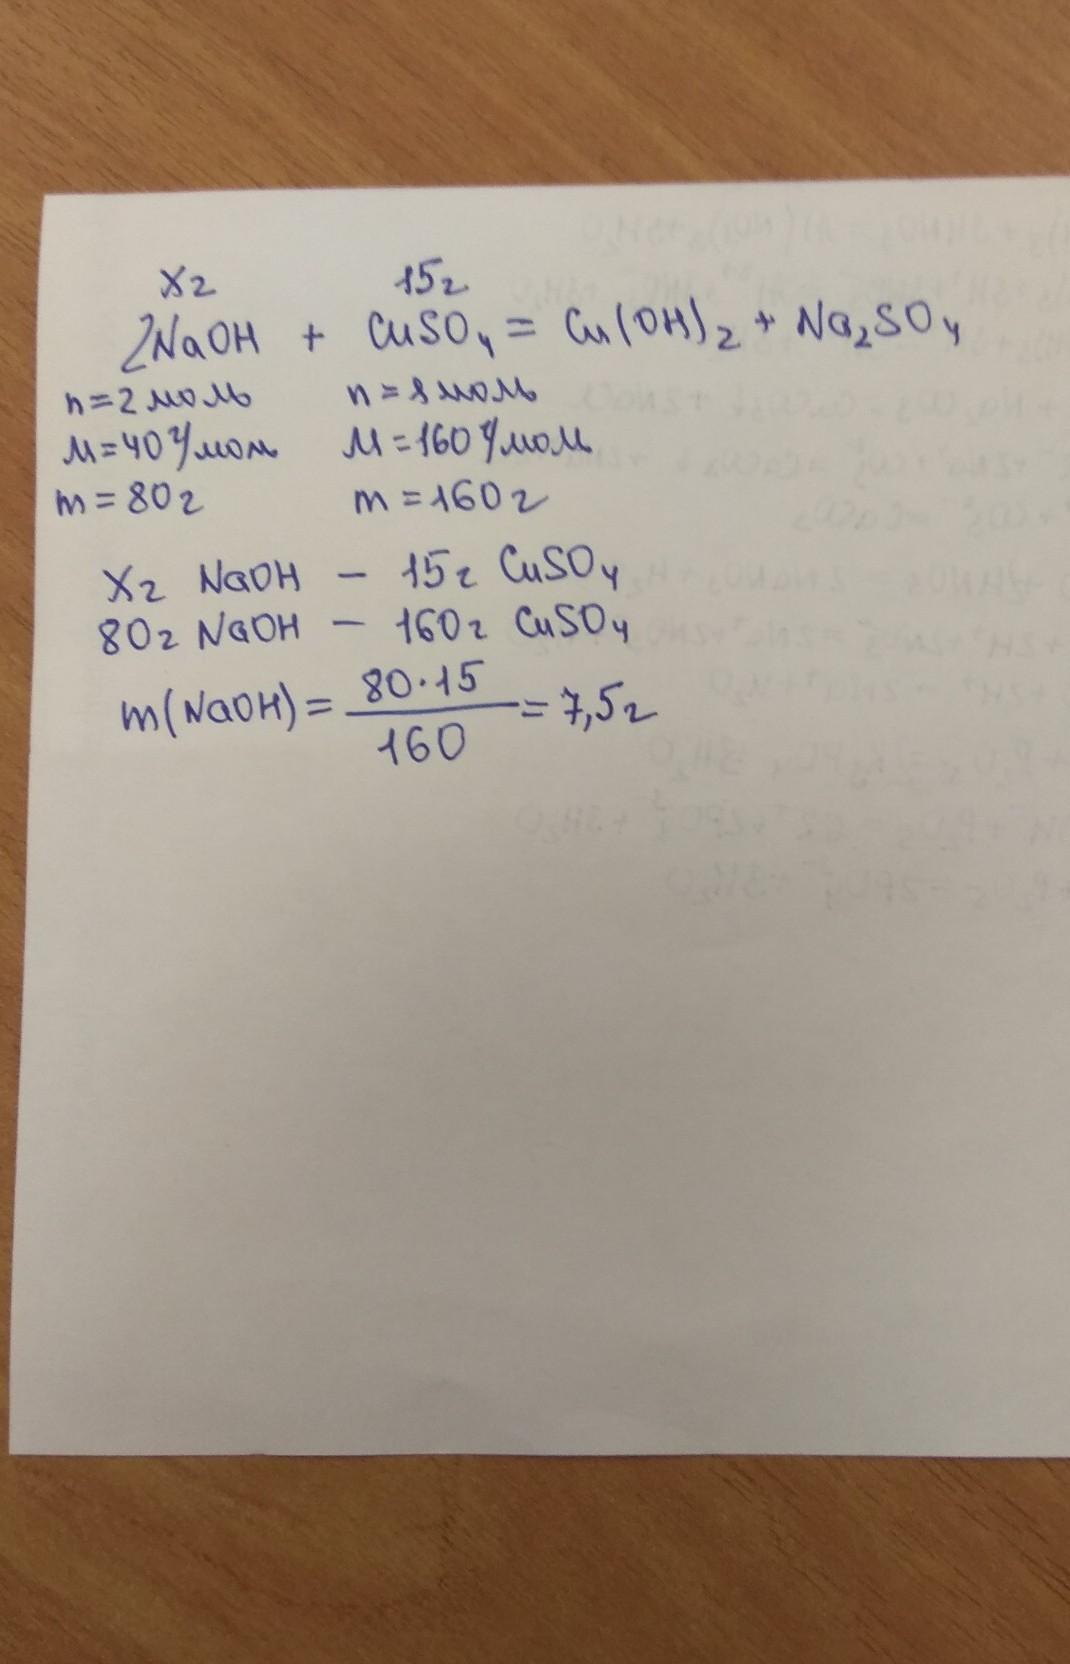 xг 15г
2NaOH + CuSO₄ = Cu(OH)₂ + Na₂SO₄
n=2моль n=1моль
M=40г/моль M=160г/моль
m=80г m=160г
xг NaOH – 15г CuSO₄
80г NaOH – 160г CuSO₄
m(NaOH)= 80·15 / 160 = 7,5г